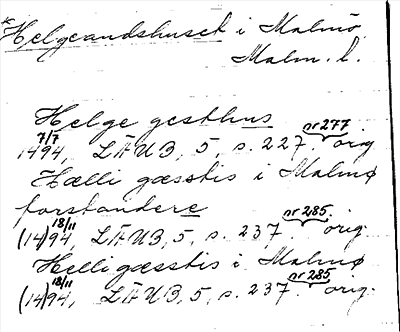 *Helgeandshuset i Malmö
Malm. l.
Helge gesthus
7/7 nr 277
1494, LÄUB, 5, s. 227. orig
Hælli gæsstis i Malmø
forstandere
18/11 nr 285
(14)94, LÄUB, 5, s. 237. orig.
Helligæsstis i Malmø
18/11 nr 285
(14)94, LÄUB, 5, s. 237. orig.